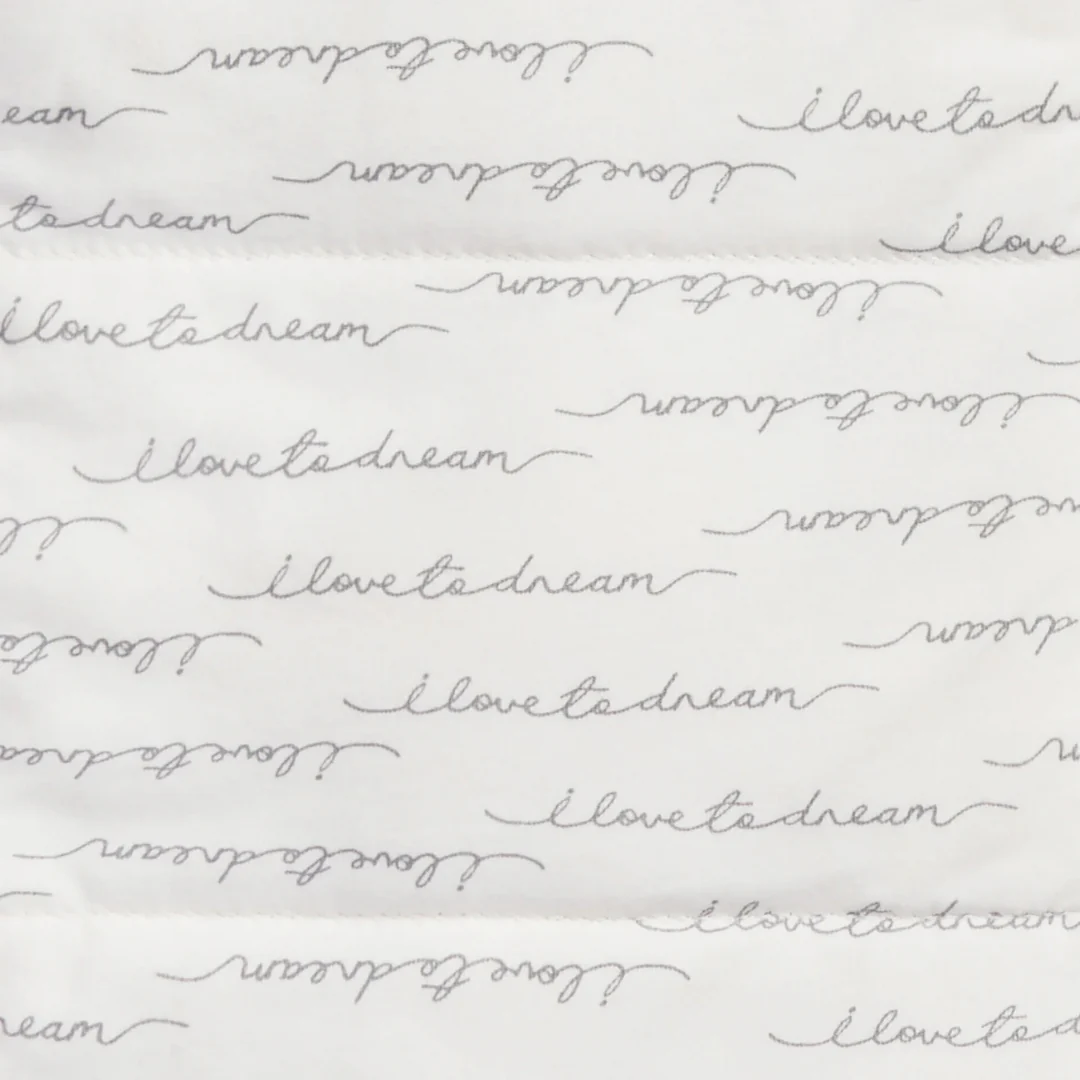 i love to dream
eam i love to dr
i love to dream
to dream i love
i love to dream
i love to dream
i love to dream
i love to dream
ve to dream
i l
i love to dream
dream
i love to
i love to dream
i love to drea
i love to dream
i love to dream
i love to dream
i love to dream
ream i love to d